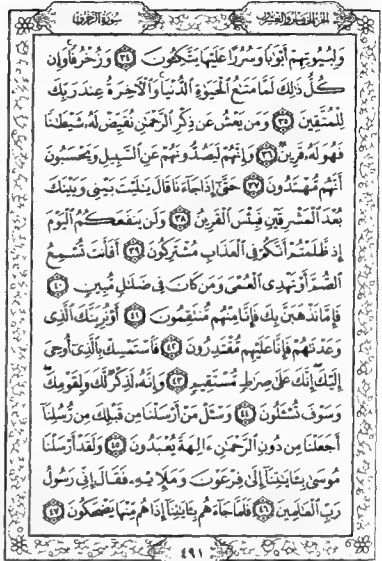 سورة الزخرف الجزء الخامس والعشرون
وَلِبُيُوتِهِمْ أَبْوَٰبًا وَسُرُرًا عَلَيْهَا يَتَّكِـُٔونَ ٣٤ وَزُخْرُفًا ۚ وَإِن
كُلُّ ذَٰلِكَ لَمَّا مَتَٰعُ ٱلْحَيَوٰةِ ٱلدُّنْيَا ۚ وَٱلْـَٔاخِرَةُ عِندَ رَبِّكَ
لِلْمُتَّقِينَ ٣٥ وَمَن يَعْشُ عَن ذِكْرِ ٱلرَّحْمَٰنِ نُقَيِّضْ لَهُۥ شَيْطَٰنًا
فَهُوَ لَهُۥ قَرِينٌ ٣٦ وَإِنَّهُمْ لَيَصُدُّونَهُمْ عَنِ ٱلسَّبِيلِ وَيَحْسَبُونَ
أَنَّهُم مُّهْتَدُونَ ٣٧ حَتَّىٰٓ إِذَا جَآءَنَا قَالَ يَٰلَيْتَ بَيْنِى وَبَيْنَكَ
بُعْدَ ٱلْمَشْرِقَيْنِ فَبِئْسَ ٱلْقَرِينُ ٣٨ وَلَن يَنفَعَكُمُ ٱلْيَوْمَ
إِذ ظَّلَمْتُمْ أَنَّكُمْ فِى ٱلْعَذَابِ مُشْتَرِكُونَ ٣٩ أَفَأَنتَ تُسْمِعُ
ٱلصُّمَّ أَوْ تَهْدِى ٱلْعُمْىَ وَمَن كَانَ فِى ضَلَٰلٍ مُّبِينٍ ٤٠
فَإِمَّا نَذْهَبَنَّ بِكَ فَإِنَّا مِنْهُم مُّنتَقِمُونَ ٤١ أَوْ نُرِيَنَّكَ ٱلَّذِى
وَعَدْنَٰهُمْ فَإِنَّا عَلَيْهِم مُّقْتَدِرُونَ ٤٢ فَٱسْتَمْسِكْ بِٱلَّذِىٓ أُوحِىَ
إِلَيْكَ ۖ إِنَّكَ عَلَىٰ صِرَٰطٍ مُّسْتَقِيمٍ ٤٣ وَإِنَّهُۥ لَذِكْرٌ لَّكَ وَلِقَوْمِكَ ۖ
وَسَوْفَ تُسْـَٔلُونَ ٤٤ وَسْـَٔلْ مَنْ أَرْسَلْنَا مِن قَبْلِكَ مِن رُّسُلِنَآ
أَجَعَلْنَا مِن دُونِ ٱلرَّحْمَٰنِ ءَالِهَةً يُعْبَدُونَ ٤٥ وَلَقَدْ أَرْسَلْنَا
مُوسَىٰ بِـَٔايَٰتِنَآ إِلَىٰ فِرْعَوْنَ وَمَلَإِي۟هِۦ فَقَالَ إِنِّى رَسُولُ
رَبِّ ٱلْعَٰلَمِينَ ٤٦ فَلَمَّا جَآءَهُم بِـَٔايَٰتِنَآ إِذَا هُم مِّنْهَا يَضْحَكُونَ ٤٧
٤٩١